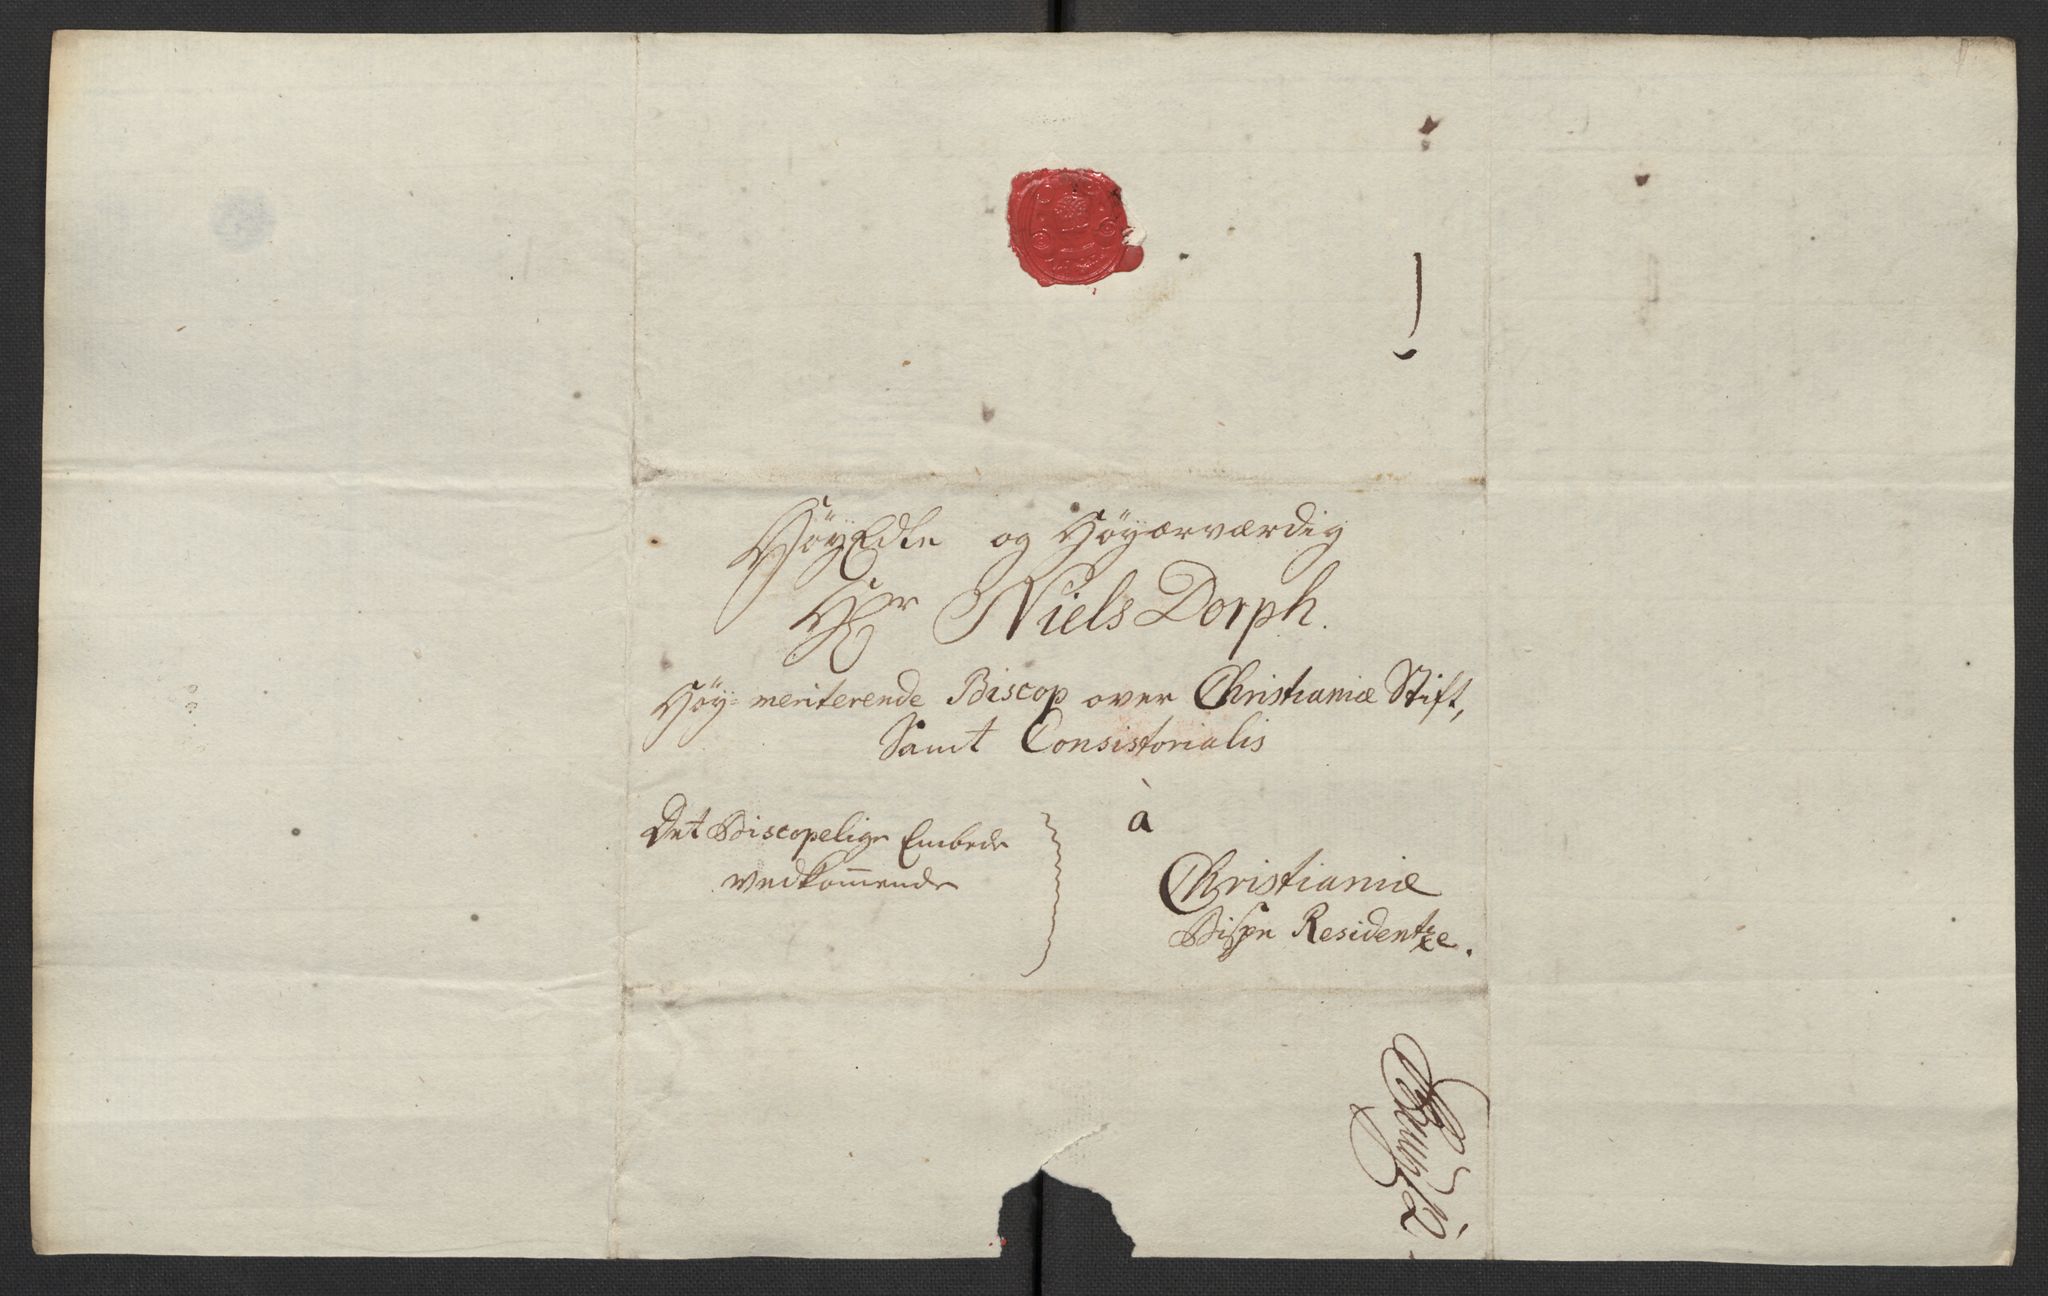 HöyEdle og Höyærværdig
Hr Niels Dorph.
Höy-meriterende Biscop over Christianiæ Stift,
Samt Consistorialis
Det Biscopelige Embede
vedkom̄ende
à
Christianiæ
Bispe Residentze.